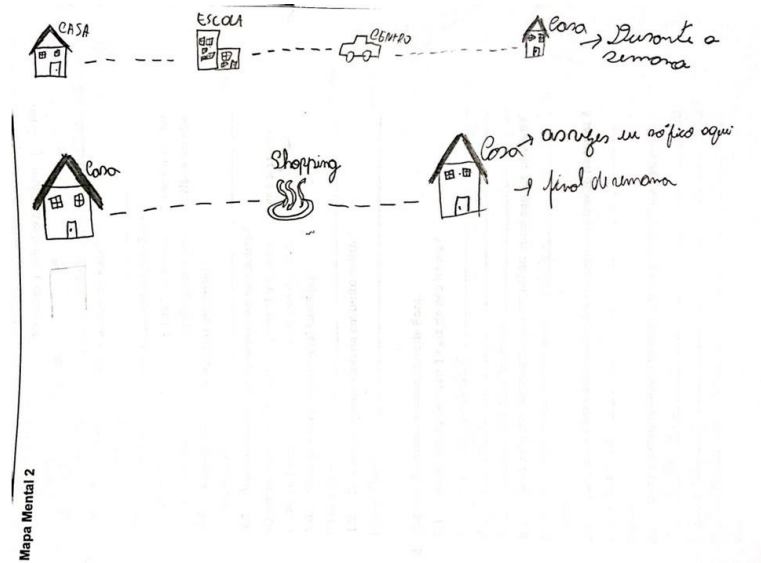 CASA
ESCOLA
CENTRO
Casa → Durante a
semana
Casa
Shopping
Casa → as vezes eu só fico aqui
→ final de semana
Mapa Mental 2